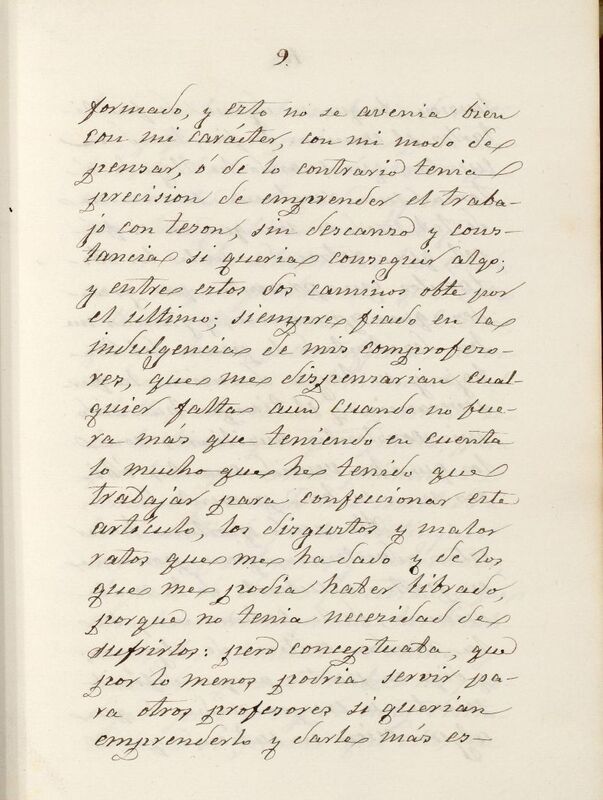 9.
formado, y esto no se avenia bien
con mi carácter, con mi modo de
pensar, ó de lo contrario tenia
precision de emprender el traba-
jo con teson, sin descanso y cons-
tancia si queria conseguir algo;
y entre estos dos caminos obté por
el último; siempre fiado en la
indulgencia de mis comprofeso-
res, que me dispensarian cual-
quier falta aun cuando no fue-
ra más que teniendo en cuenta
lo mucho que he tenido que
trabajar para confeccionar este
artículo, los disgustos y malos
ratos que me ha dado y de los
que me podia haber librado,
porque no tenia necesidad de
sufrirlos: pero conceptuaba, que
por lo menos podria servir pa-
ra otros profesores si querian
emprenderlo y darle más es-